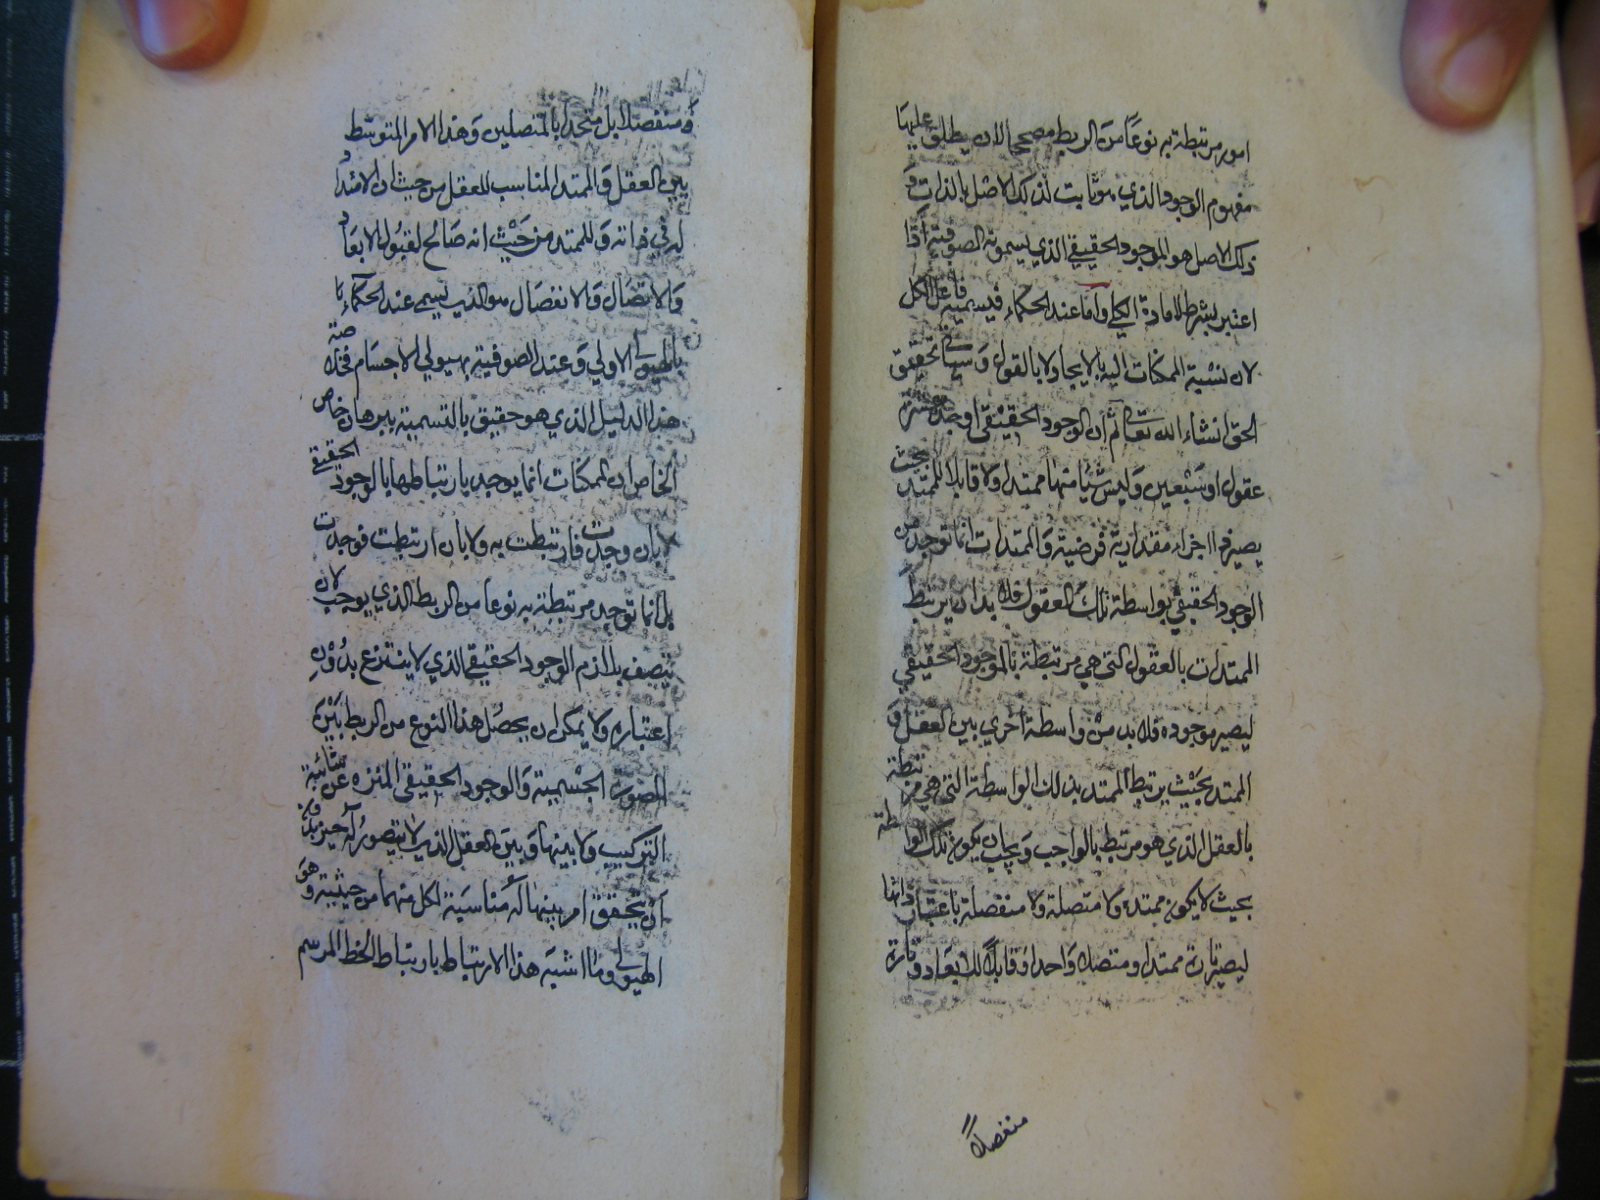 امور مرتبطة به نوعًا من الربط مصححا لان يطلق عليها
مفهوم الوجود الذي هو ثابت لذلك الاصل بالذات و
ذلك الاصل هو الموجود الحقيقي الذي يسمونه الصوفية اذا
اعتبر بشرط لا مادة الكلي واما عند الحكماء فيسميه فاعل الكل
لان نسبة الممكنات اليه بالايجاد لا بالقول وسياتي تحقيق
الحق انشاء الله تعالى ثم ان الوجود الحقيقي اوجد عشرة
عقول او سبعين وليس شيئا منها ممتد ولا قابلا للممتد بحيث
يصير ذا اجزاء مقدارية فرضية والممتدات انما توجد من
الوجود الحقيقي بواسطة تلك العقول فلا بد ان يرتبط
الممتدات بالعقول التي هي مرتبطة بالموجود الحقيقي
ليصير موجوده فلا بد من واسطة اخري بين العقل و
الممتد بحيث يرتبط الممتد بذلك الواسطة التي هي مرتبطة
بالعقل الذي هو مرتبط بالواجب ويجب ان يكون تلك الواسطة
بحيث لا يكون ممتدة ولا متصلة ولا منفصلة باعتبار ذاتها
ليصير تارة ممتدا ومتصلا واحدا وقابلا للابعاد وتارة
منفصلاً
ومنفصلا بل متحدا بالمنصلين وهذا الامر المتوسط
بين العقل والممتد المناسب للعقل من حيث ان لا امتداد
له في ذاته وللممتد من حيث انه صالح لقبول الابعاد
والاتصال والانفصال هو الذي يسمى عند الحكماء
بالهيولى الاولي وعند الصوفية بهيولي الاجسام فخلاصة
هذا الدليل الذي هو حقيق بالتسمية ببرهان خاص
الخاص ان الممكنات انما يوجد بارتباطها بالوجود الحقيقي
لا بان وجدت فارتبطت به ولا بان ارتبطت فوجدت
بل انما توجد مرتبطة به نوعا من الربط الذي يوجب لان
يتصف بلازم الوجود الحقيقي الذي لا ينتزع بدون
اعتباره ولا يمكن ان يحصل هذا النوع من الربط بين
الصورة الجسمية والوجود الحقيقي المنزه عن شائبة
التركيب ولا بينها وبين العقل الذي لا يتصور له حيز فلابد
ان يتحقق امر بينهما له مناسبة لكل منهما من حيثية وهو
الهيولى وما اشبه هذا الارتباط بارتباط الخط المرسم